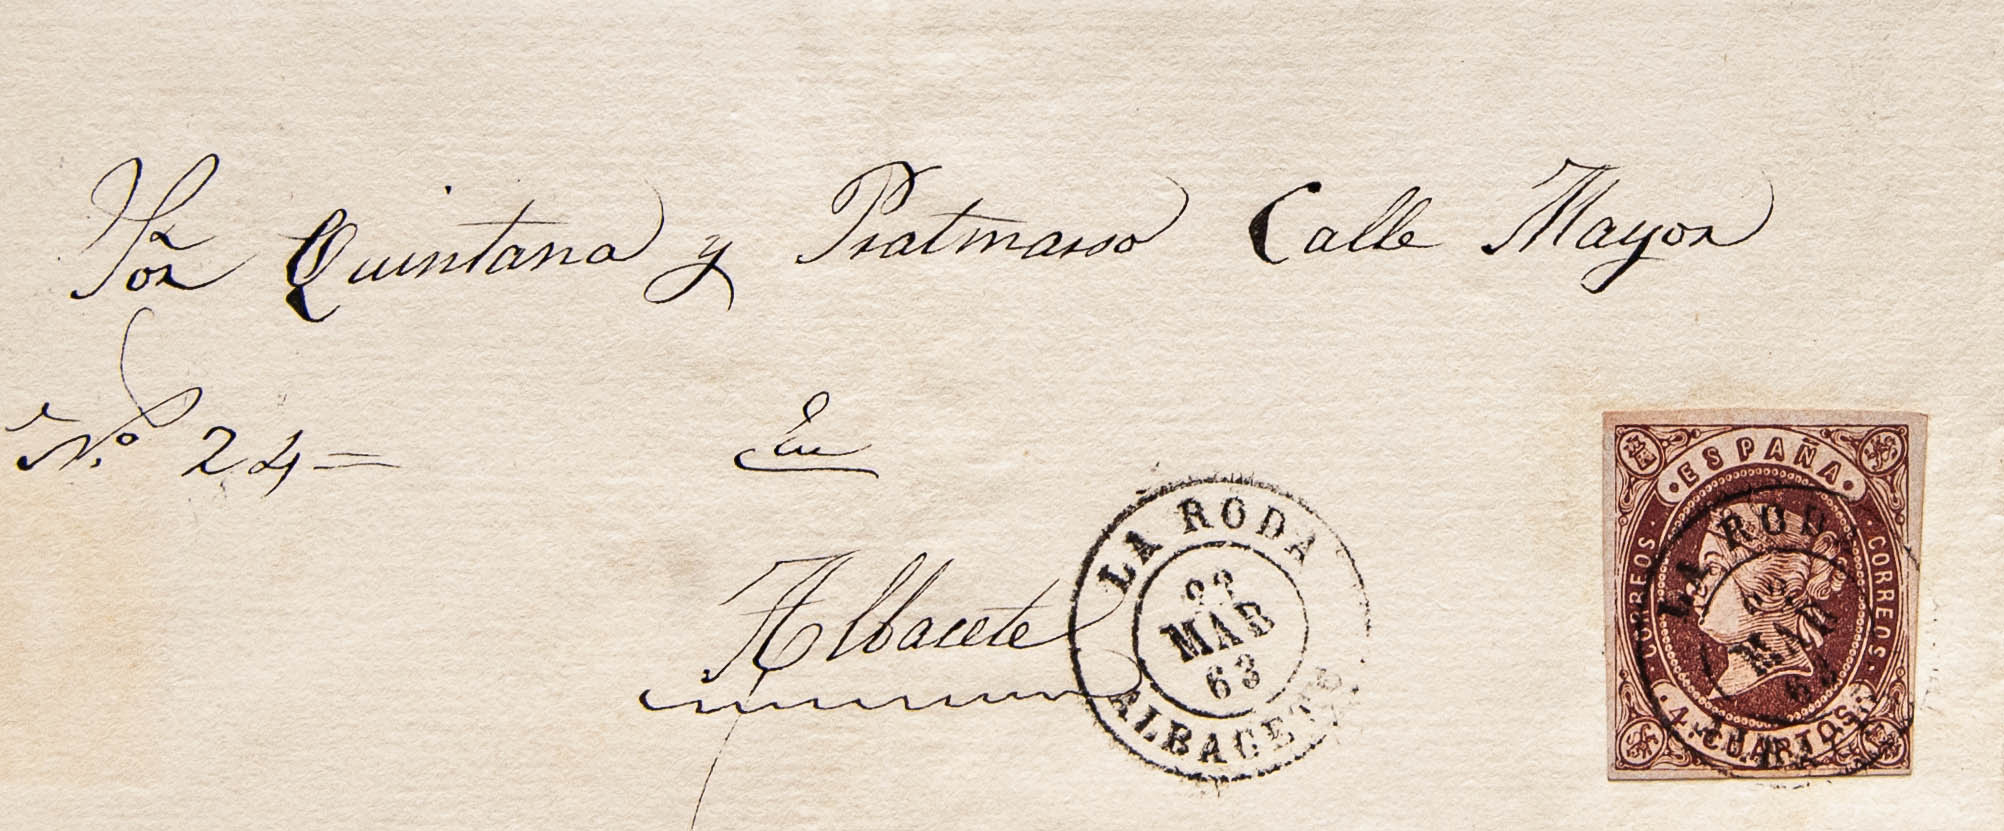 Sor Quintana y Pratmarso Calle Mayor
Nº 24=
En
Albacete
LA RODA
22
MAR
63
ALBACETE
·ESPAÑA·
·CORREOS·
·CORREOS·
4 CUARTOS
LA RODA
22
MAR
63